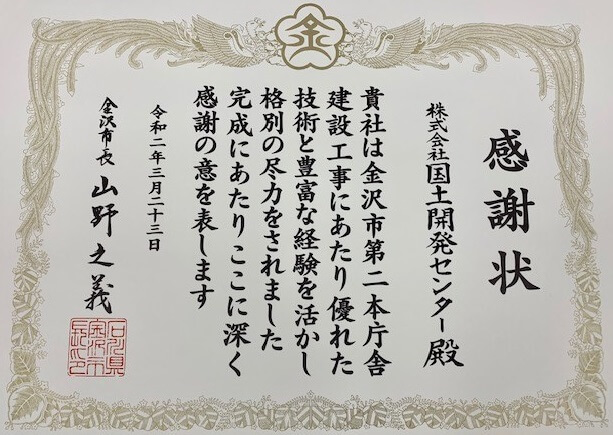 金
感謝状
株式会社国土開発センター殿
貴社は金沢市第二本庁舎
建設工事にあたり優れた
技術と豊富な経験を活かし
格別の尽力をされました
完成にあたりここに深く
感謝の意を表します
令和二年三月二十三日
金沢市長 山野之義
石川県
金沢市
長之印